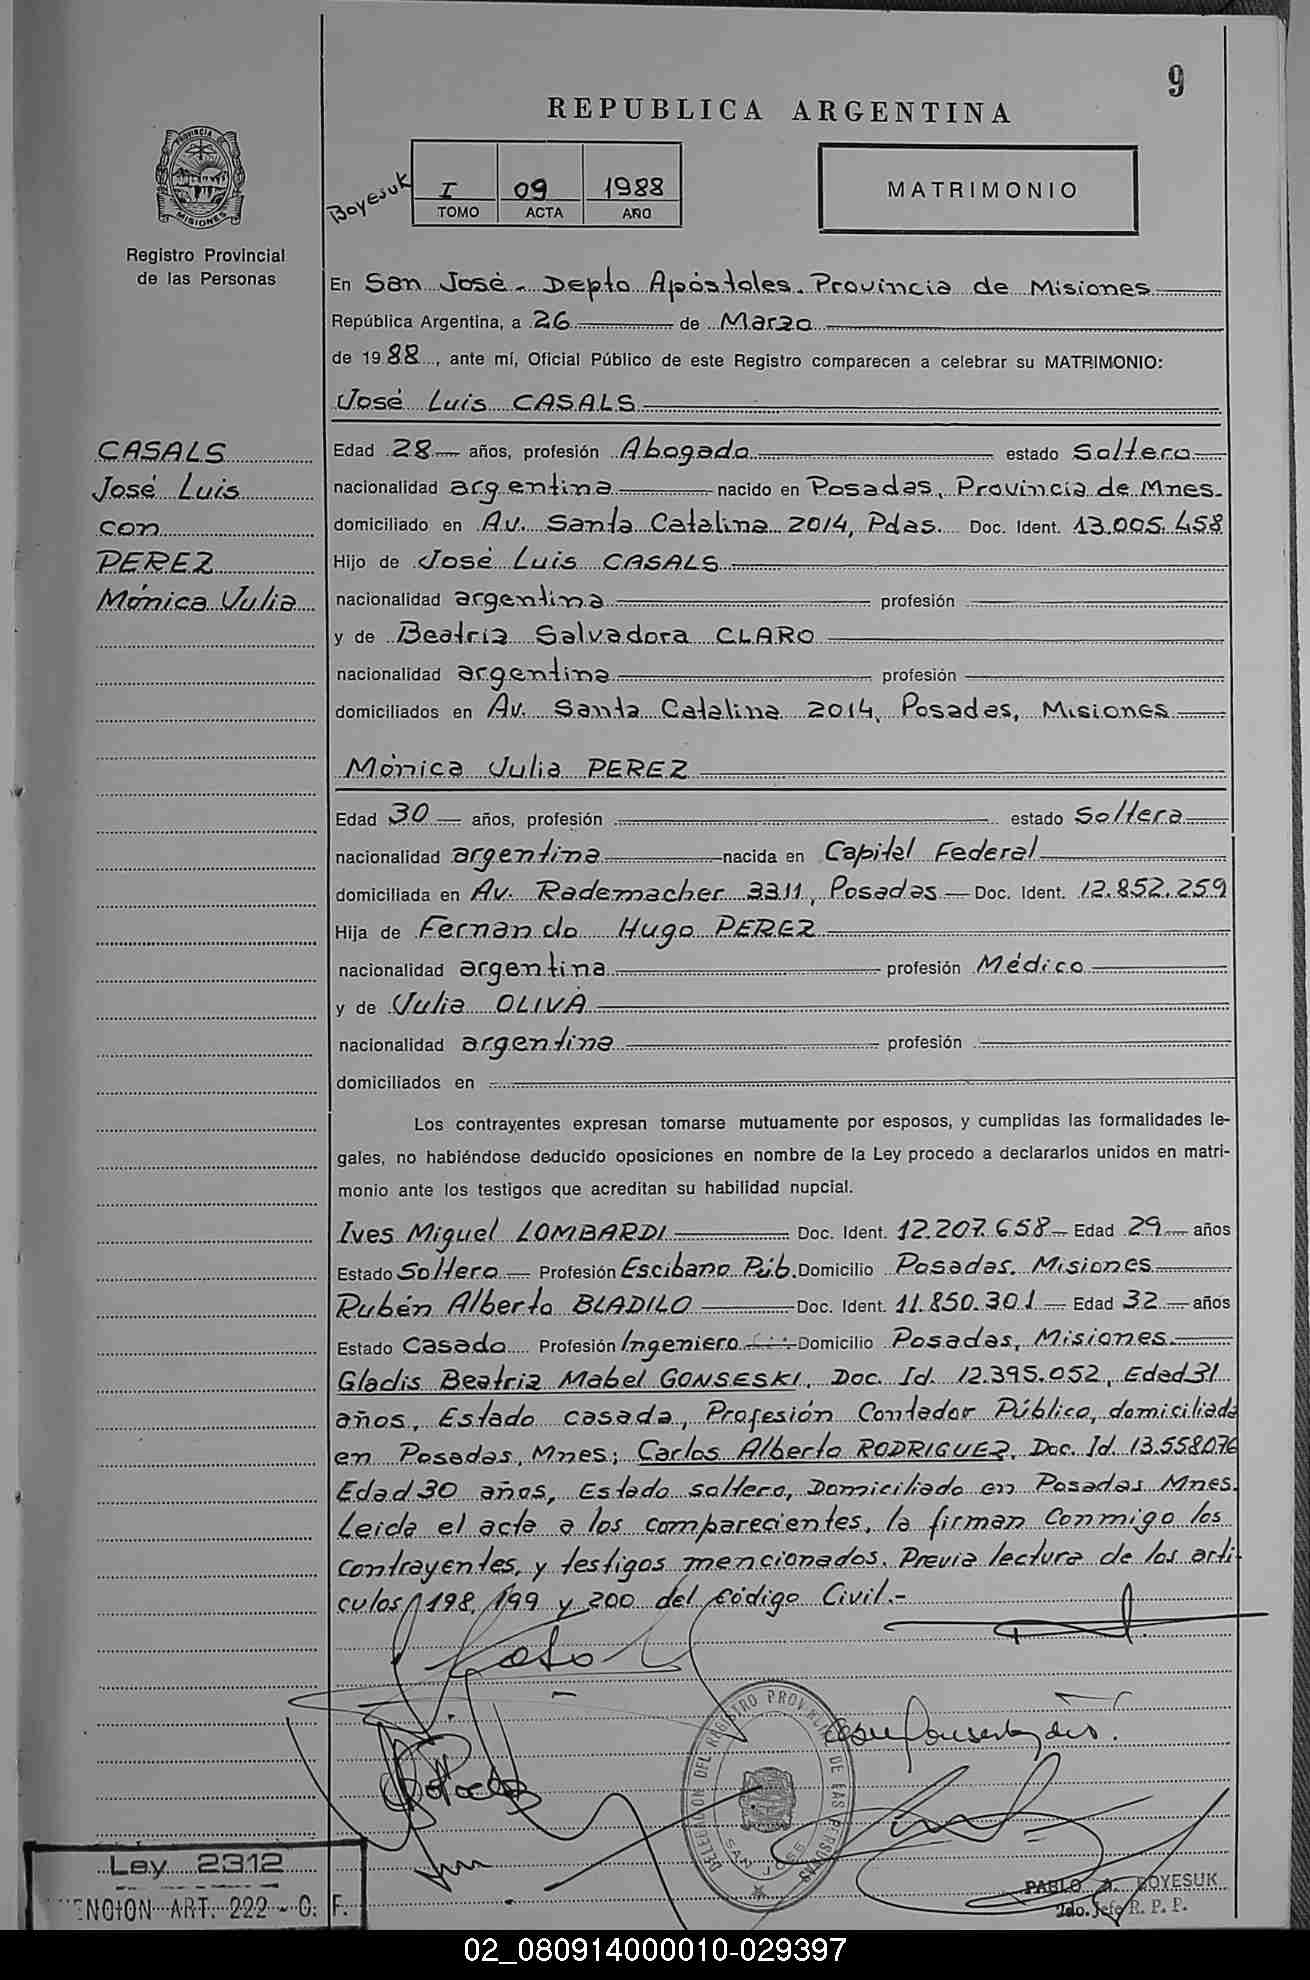 9
REPUBLICA ARGENTINA
PROVINCIA DE
MISIONES
Registro Provincial
de las Personas
Boyesuk
I 09 1988
TOMO ACTA AÑO
MATRIMONIO
En San José - Depto Apóstoles. Provincia de Misiones
República Argentina, a 26 de Marzo
de 1988, ante mí, Oficial Público de este Registro comparecen a celebrar su MATRIMONIO:
José Luis CASALS
CASALS
José Luis
con
PEREZ
Mónica Julia
Edad 28 años, profesión Abogado estado Soltero
nacionalidad argentina nacido en Posadas, Provincia de Mnes.
domiciliado en Av. Santa Catalina 2014, Pdas. Doc. Ident. 13.005.458
Hijo de José Luis CASALS
nacionalidad argentina profesión
y de Beatriz Salvadora CLARO
nacionalidad argentina profesión
domiciliados en Av. Santa Catalina 2014, Posadas, Misiones
Mónica Julia PEREZ
Edad 30 años, profesión estado Soltera
nacionalidad argentina nacida en Capital Federal
domiciliada en Av. Rademacher 3311, Posadas Doc. Ident. 12.852.259
Hija de Fernando Hugo PEREZ
nacionalidad argentina profesión Médico
y de Julia OLIVA
nacionalidad argentina profesión
domiciliados en
Los contrayentes expresan tomarse mutuamente por esposos, y cumplidas las formalidades le-
gales, no habiéndose deducido oposiciones en nombre de la Ley procedo a declararlos unidos en matri-
monio ante los testigos que acreditan su habilidad nupcial.
Ives Miguel LOMBARDI Doc. Ident. 12.207.658 Edad 29 años
Estado Soltero Profesión Escibano Púb. Domicilio Posadas. Misiones
Rubén Alberto BLADILO Doc. Ident. 11.850.301 Edad 32 años
Estado Casado Profesión Ingeniero Domicilio Posadas, Misiones
Gladis Beatriz Mabel GONSESKI, Doc. Id. 12.395.052, Edad 31
años, Estado casada, Profesión Contador Público, domiciliada
en Posadas, Mnes; Carlos Alberto RODRIGUEZ, Doc. Id. 13.558.076
Edad 30 años, Estado soltero, Domiciliado en Posadas Mnes.
Leida el acta a los comparecientes, la firman conmigo los
contrayentes, y testigos mencionados. Previa lectura de los arti-
culos 198, 199 y 200 del Código Civil.-
DELEGACION DEL REGISTRO PROVINCIAL DE LAS PERSONAS
SAN JOSE
PABLO A. BOYESUK
2do. Jefe R. P. P.
Ley 2312
ENCION ART. 222 - C. F.
02_080914000010-029397